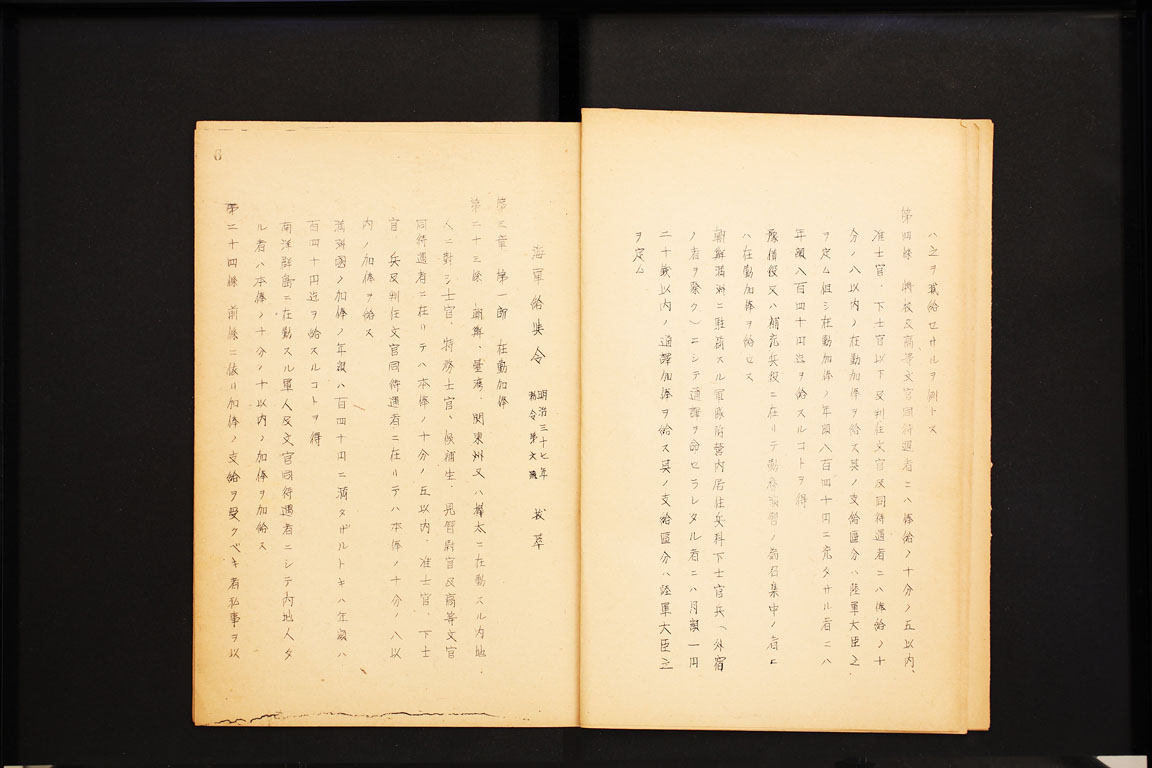 ハ之ヲ減給セサルヲ例トス
第四條 將校及高等文官同待遇者ニハ俸給ノ十分ノ五以内、
准士官、下士官以下及判任文官及同待遇者ニハ俸給ノ十
分ノ八以内ノ在勤加俸ヲ給ス其ノ支給區分ハ陸軍大臣之
ヲ定ム但シ在勤加俸ノ年額八百四十円ニ充タサル者ニハ
年額八百四十円迄ヲ給スルコトヲ得
豫備役又ハ補充兵役ニ在リテ勤務演習ノ為召集中ノ者ニ
ハ在勤加俸ヲ給セス
朝鮮滿洲ニ駐箚スル軍隊所管内居住兵科下士官兵（外宿
ノ者ヲ除ク）ニシテ通譯ヲ命セラレタル者ニハ月額一円
二十錢以内ノ通譯加俸ヲ給ス其ノ支給區分ハ陸軍大臣之
ヲ定ム
海軍給與令 明治三十七年 勅令第 號 抜萃
第三章 第一節 在勤加俸
第二十三條 朝鮮、臺灣、関東州又ハ樺太ニ在勤スル内地
人ニ對シ士官、特務士官、候補生、見習尉官及高等文官
同待遇者ニ在リテハ本俸ノ十分ノ五以内、准士官、下士
官、兵及判任文官同待遇者ニ在リテハ本俸ノ十分ノ八以
内ノ加俸ヲ給ス
滿洲國ノ加俸ノ年額ハ百四十円ニ滿タザルトキハ年額八
百四十円迄ヲ給スルコトヲ得
南洋群島ニ在勤スル軍人及文官同待遇者ニシテ内地人タ
ル者ハ本俸ノ十分ノ十以内ノ加俸ヲ加給ス
第二十四條 前條ニ依リ加俸ノ支給ヲ受クベキ者私事ヲ以
6